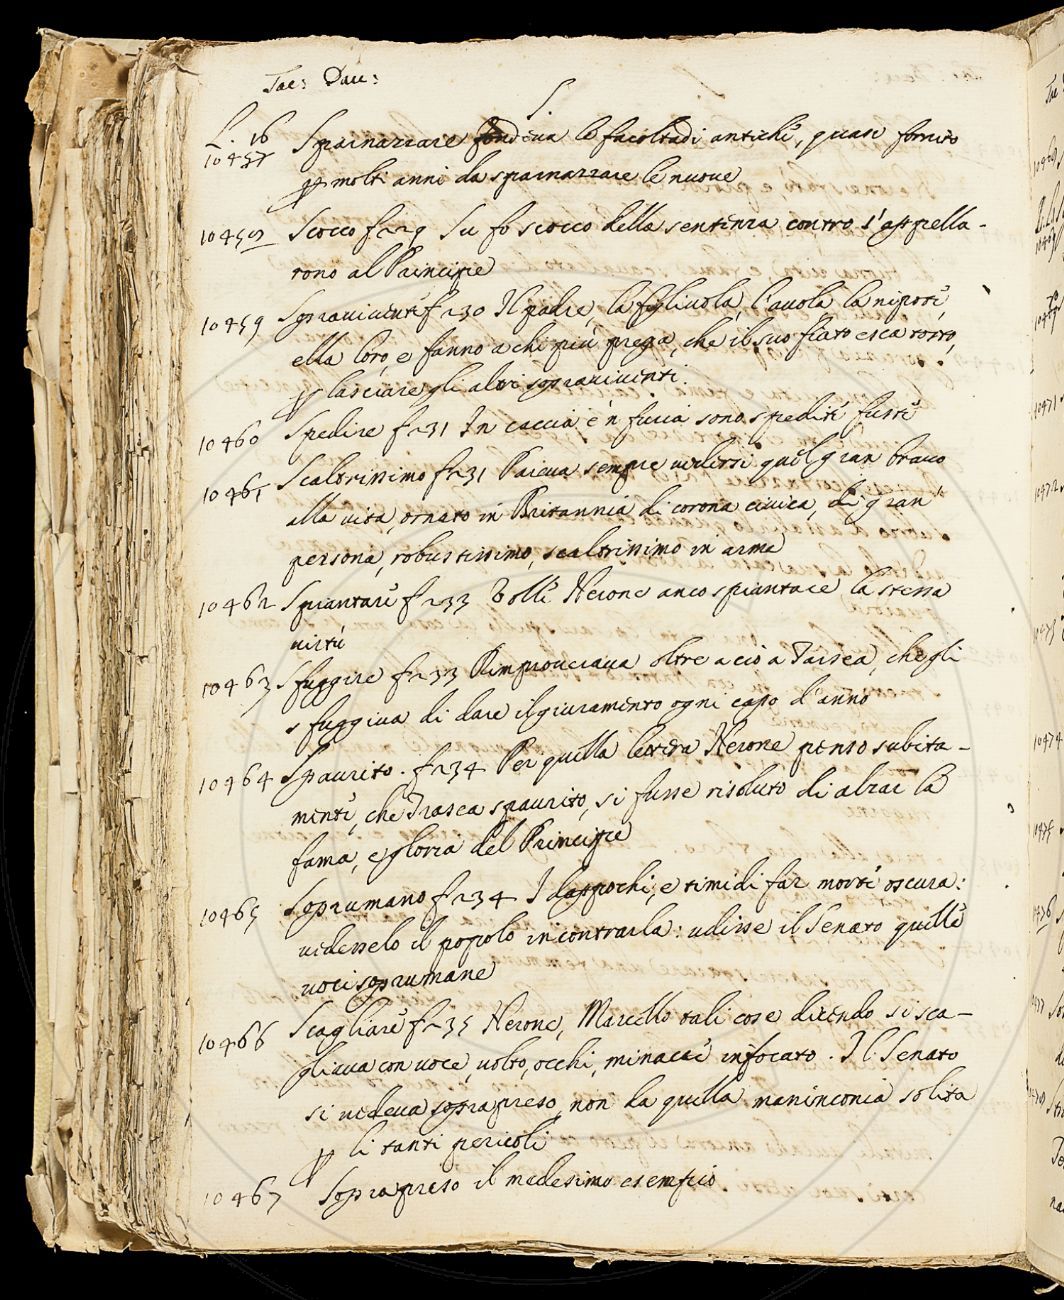 Tac: Dav:
S.
L. 16
10457 Sparnazzare fondeva le facoltadi antiche, quasi fornito
p molti anni da sparnazzare le nuove
10458 Sciocco fr 29 Su fo sciocco della sentenza contro s'appella-
rono al Principe
10459 Sopraviventi fr 30 Il padre, la figlivola, l'avola la nipote,
ella loro, e fanno a chi più prega, che il suo fiato esca tosto,
p lasciare gli altri sopraviventi.
10460 Spedire fr 31 In caccia e 'n furia sono spediti fusti
10461 Scaltrissimo fr 31 Paieva sempre vedersi quel gran bravo
alla vita, ornato in Britannia di corona civica, di gran
persona, robustissimo, scaltrissimo in arme
10462 Spiantare fr 33 Volle Nerone anco spiantare la stessa
virtù
10463 Sfuggire fr 33 Rimproverava oltre a ciò a Trasea, che gli
sfuggiva di dare il giuramento ogni capo d'anno
10464 Spaurito. fr 34 Per quella lettera Nerone penso subita-
mente, che Trasea spaurito, si fusse risoluto di alzar la
fama, e gloria del Principe
10465 Soprumano fr 34 I dappochi, e timidi far morte oscura:
vedesselo il popolo incontrarla: udisse il Senato quelle
voci soprumane
10466 Scagliare fr 35 Nerone, Marcello tali cose dicendo si sca-
gliava con voce, volto, occhi, minacce infocato. Il Senato
si vedeva soprapreso, non da quella maninconia solita
p li tanti pericoli
10467 Soprapreso il medesimo esempio